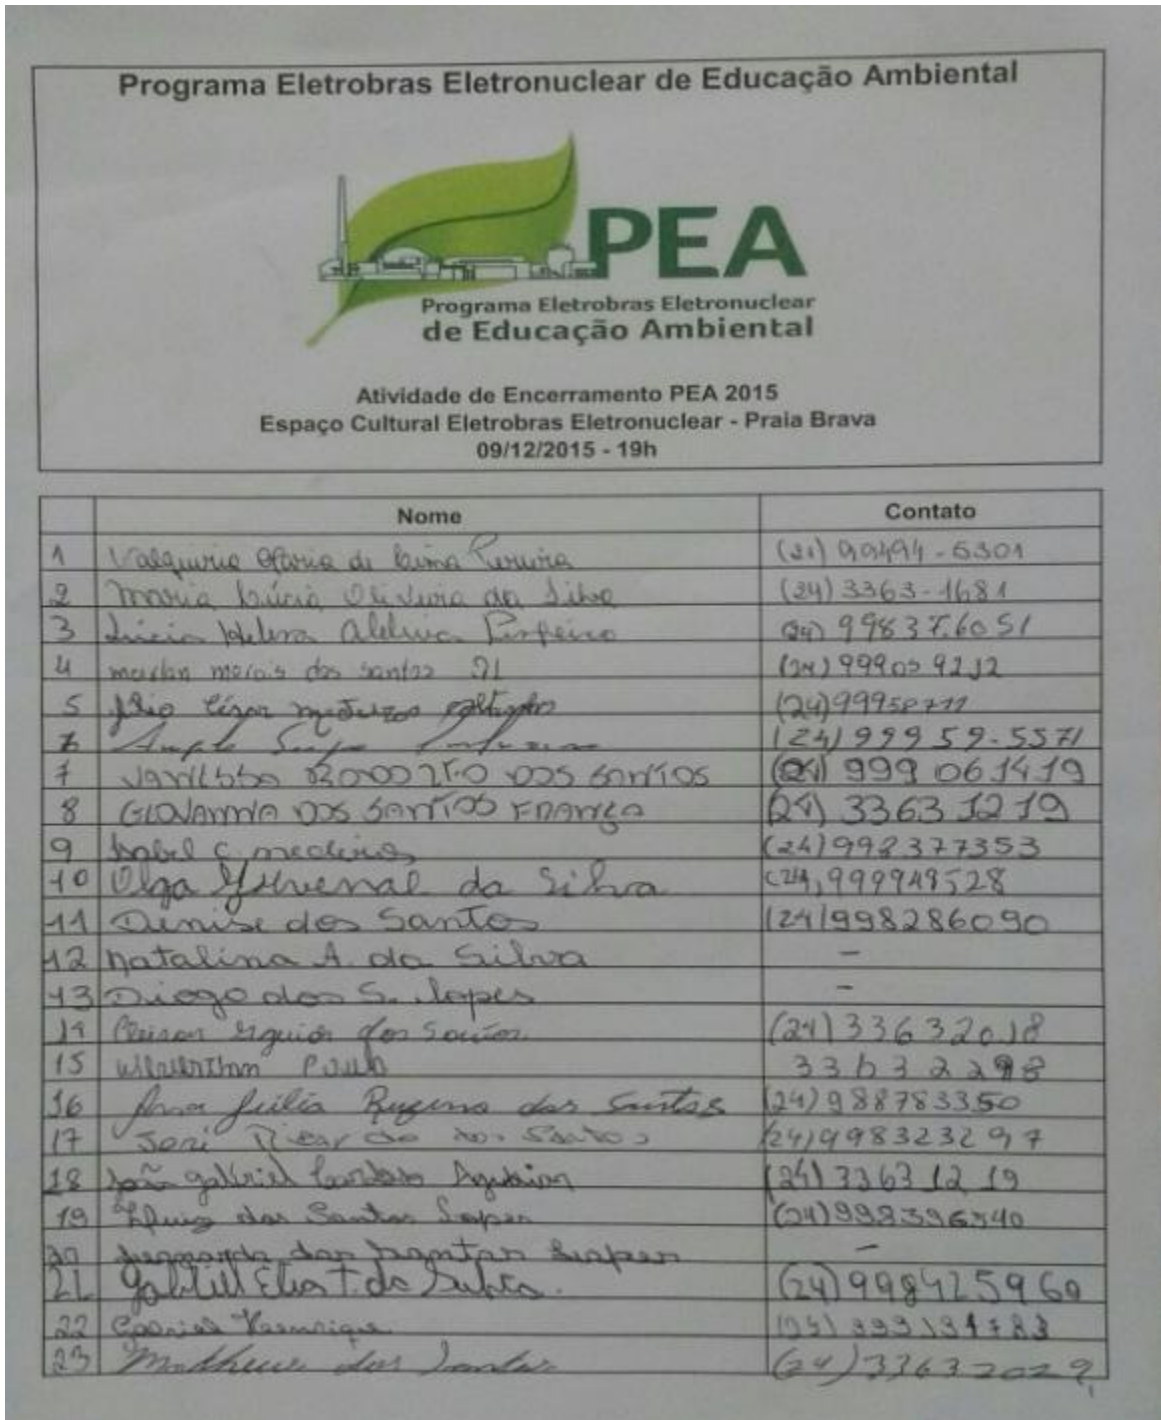 Programa Eletrobras Eletronuclear de Educação Ambiental
PEA
Programa Eletrobras Eletronuclear
de Educação Ambiental
Atividade de Encerramento PEA 2015
Espaço Cultural Eletrobras Eletronuclear - Praia Brava
09/12/2015 - 19h
Nome Contato
1 Valquiria Maria de Lima Pereira (21) 99494-5301
2 Maria Lúcia Oliveira da Silva (24) 3363-1681
3 Lucia Helena (24) 99837.6051
4 morais dos santos (24) 99909 9212
5 cézar (24)99958711
6 (24) 99959-5571
7 DOS SANTOS (24) 999 061419
8 GIOVANNA DOS SANTOS FRANÇA (24) 3363 1219
9 Isabel C. medeiros (24) 998377353
10 Olga Juvenal da Silva (24) 999949528
11 Denise dos Santos (24) 998286090
12 Natalina A. da Silva -
13 Diogo dos S. Lopes -
14 dos Santos (24) 33632018
15 Paulo 33632298
16 Ana Júlia dos Santos (24) 988783350
17 Ricardo dos Santos (24) 998323297
18 João gabriel Cardoso (24) 3363 12 19
19 dos Santos Lopes (24) 998396540
20 Fernanda dos Santos Lopes -
21 Gabriel Elias T. da Silva. (24) 998425960
22 Gabriel Henrique
23 Matheus dos Santos (24) 33632029